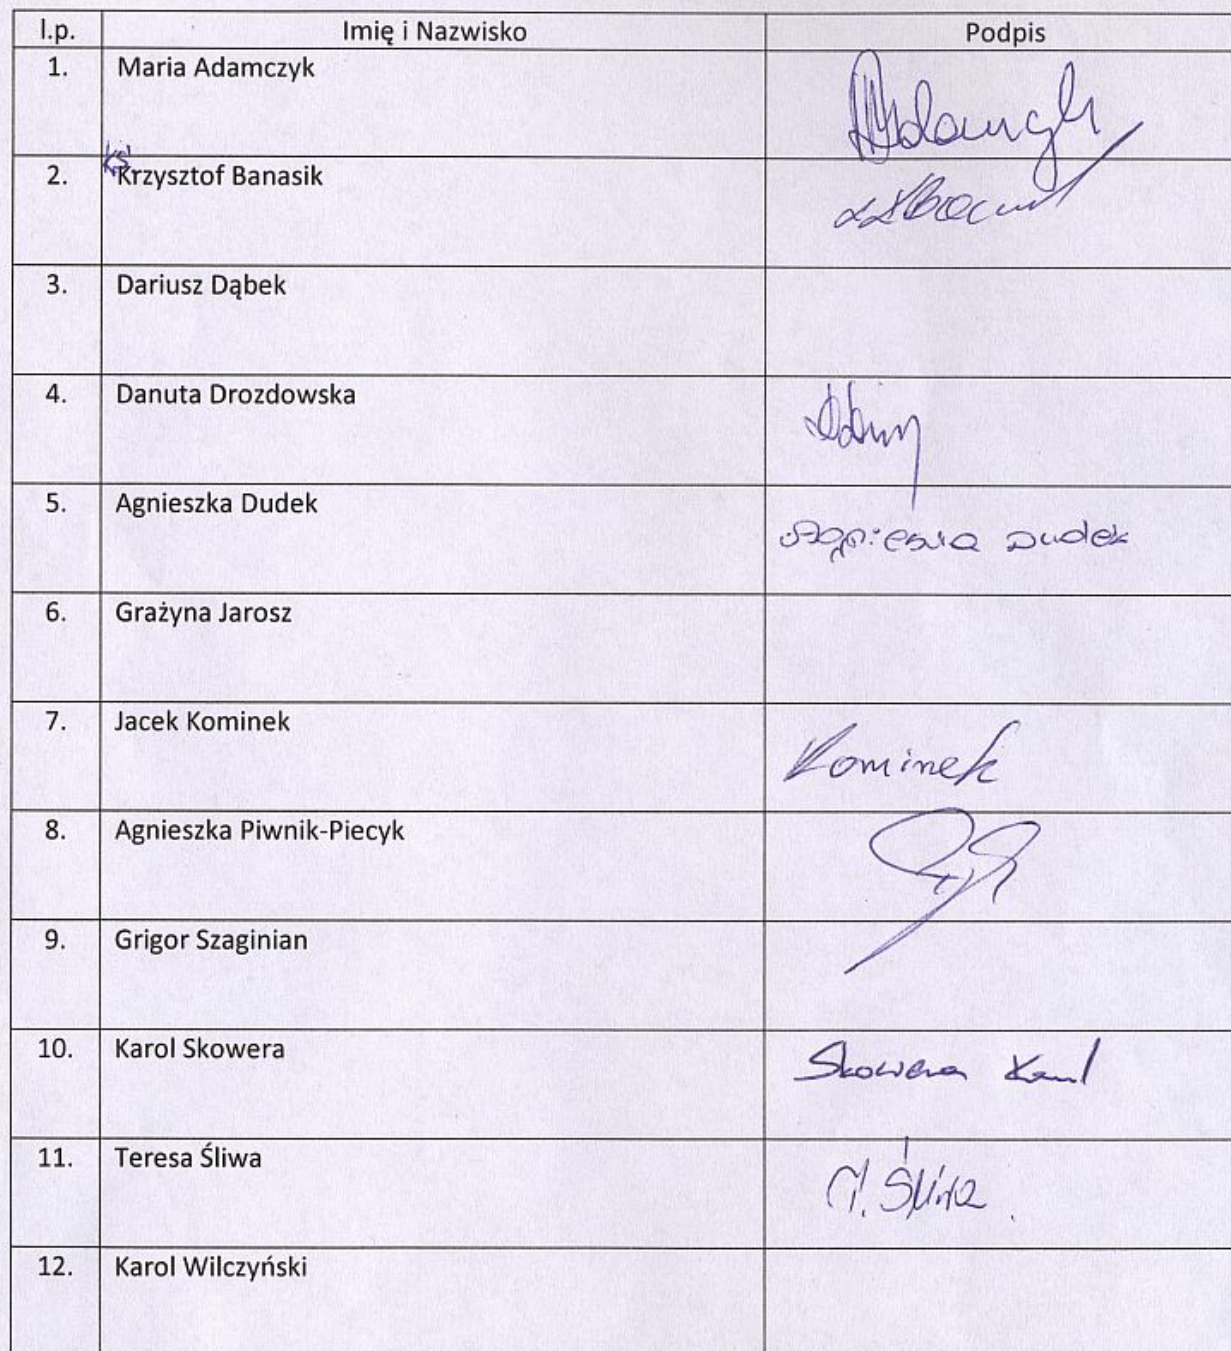 l.p. Imię i Nazwisko Podpis
1. Maria Adamczyk
ks.
2. Krzysztof Banasik
3. Dariusz Dąbek
4. Danuta Drozdowska
5. Agnieszka Dudek Agnieszka Dudek
6. Grażyna Jarosz
7. Jacek Kominek Kominek
8. Agnieszka Piwnik-Piecyk
9. Grigor Szaginian
10. Karol Skowera Skowera Karol
11. Teresa Śliwa T. Śliwa
12. Karol Wilczyński